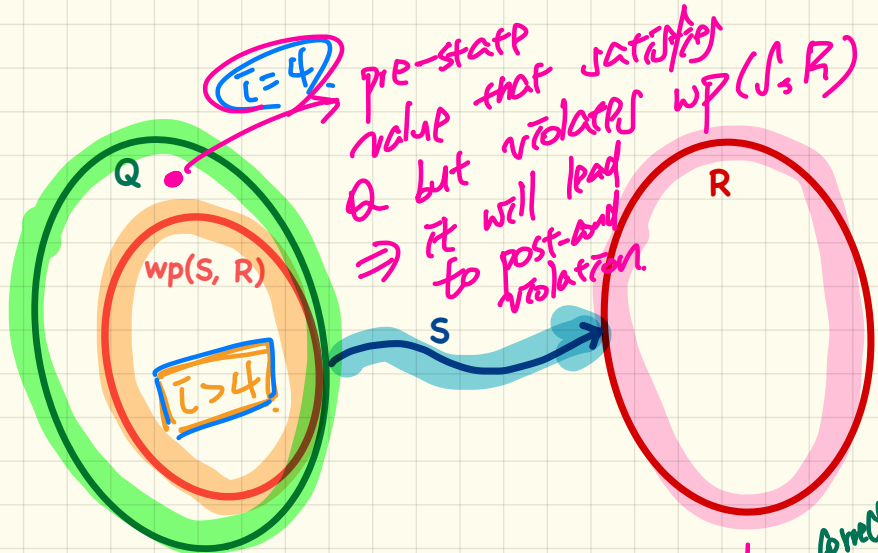 i=4.
pre-state
value that satisfies
Q but violates wp(S, R)
⇒ it will lead
to post-cond
violation.
Q
wp(S, R)
i>4
S
R